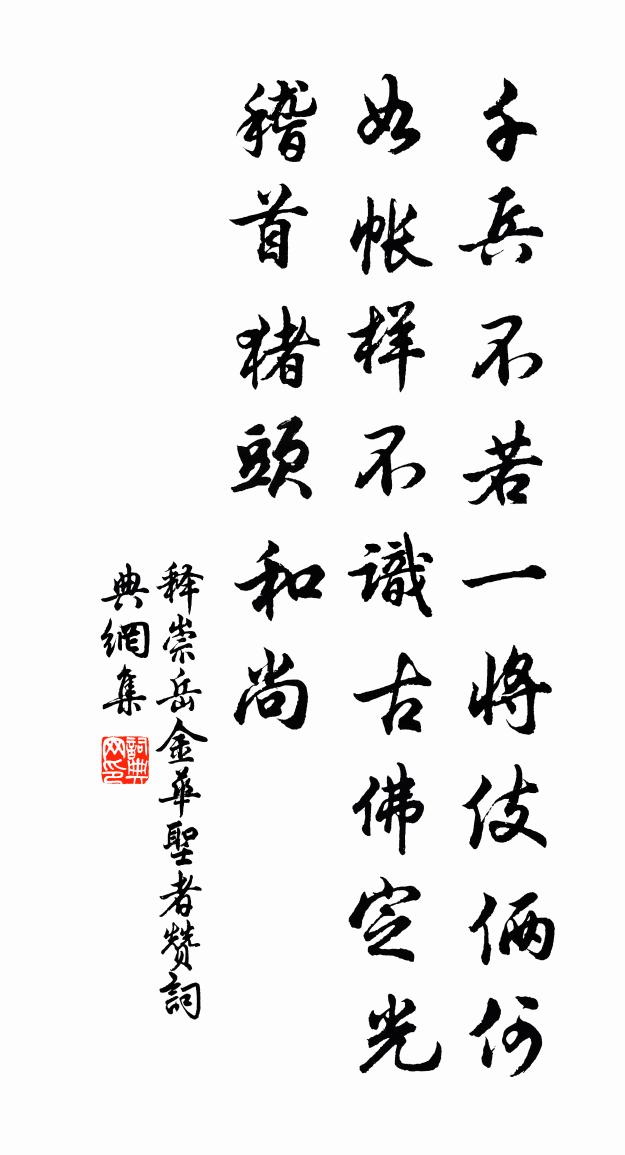 千兵不若一将伎俩何
如帐样不識古佛定光
稽首猪頭和尚
释崇岳金華聖者赞詞
典網集
詞典网印